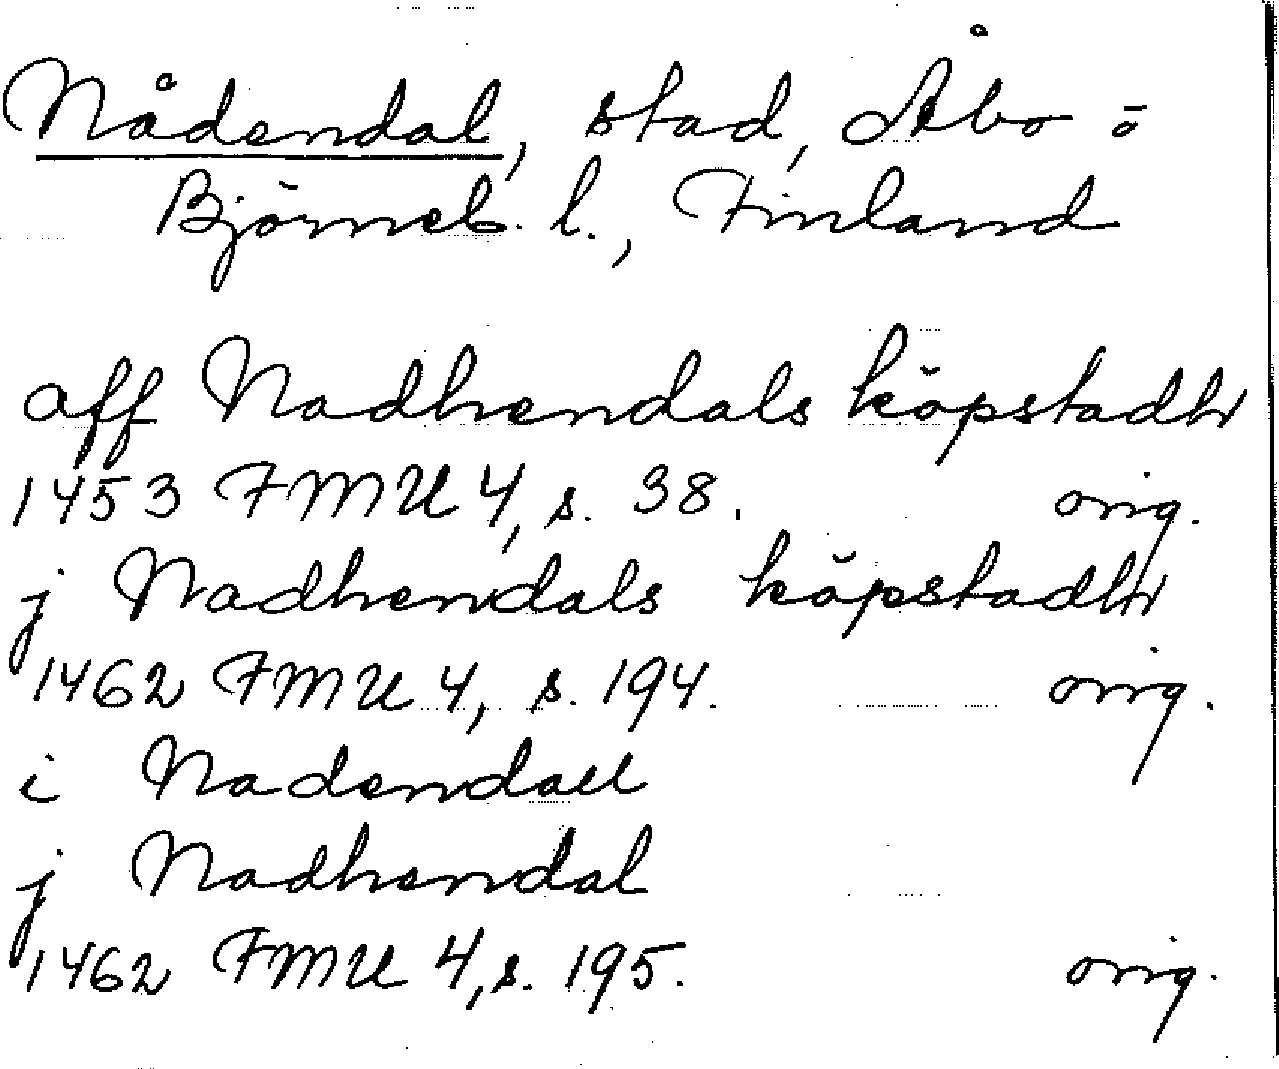 Nådendal, stad, Åbo - o
Björneb. l., Finland
aff Nadhendals köpstadh
1453 FMU 4, s. 38. orig.
j Nadhendals köpstadh
1462 FMU 4, s. 194. orig.
i Nadendall
j Nadhendal
1462 FMU 4, s. 195. orig.